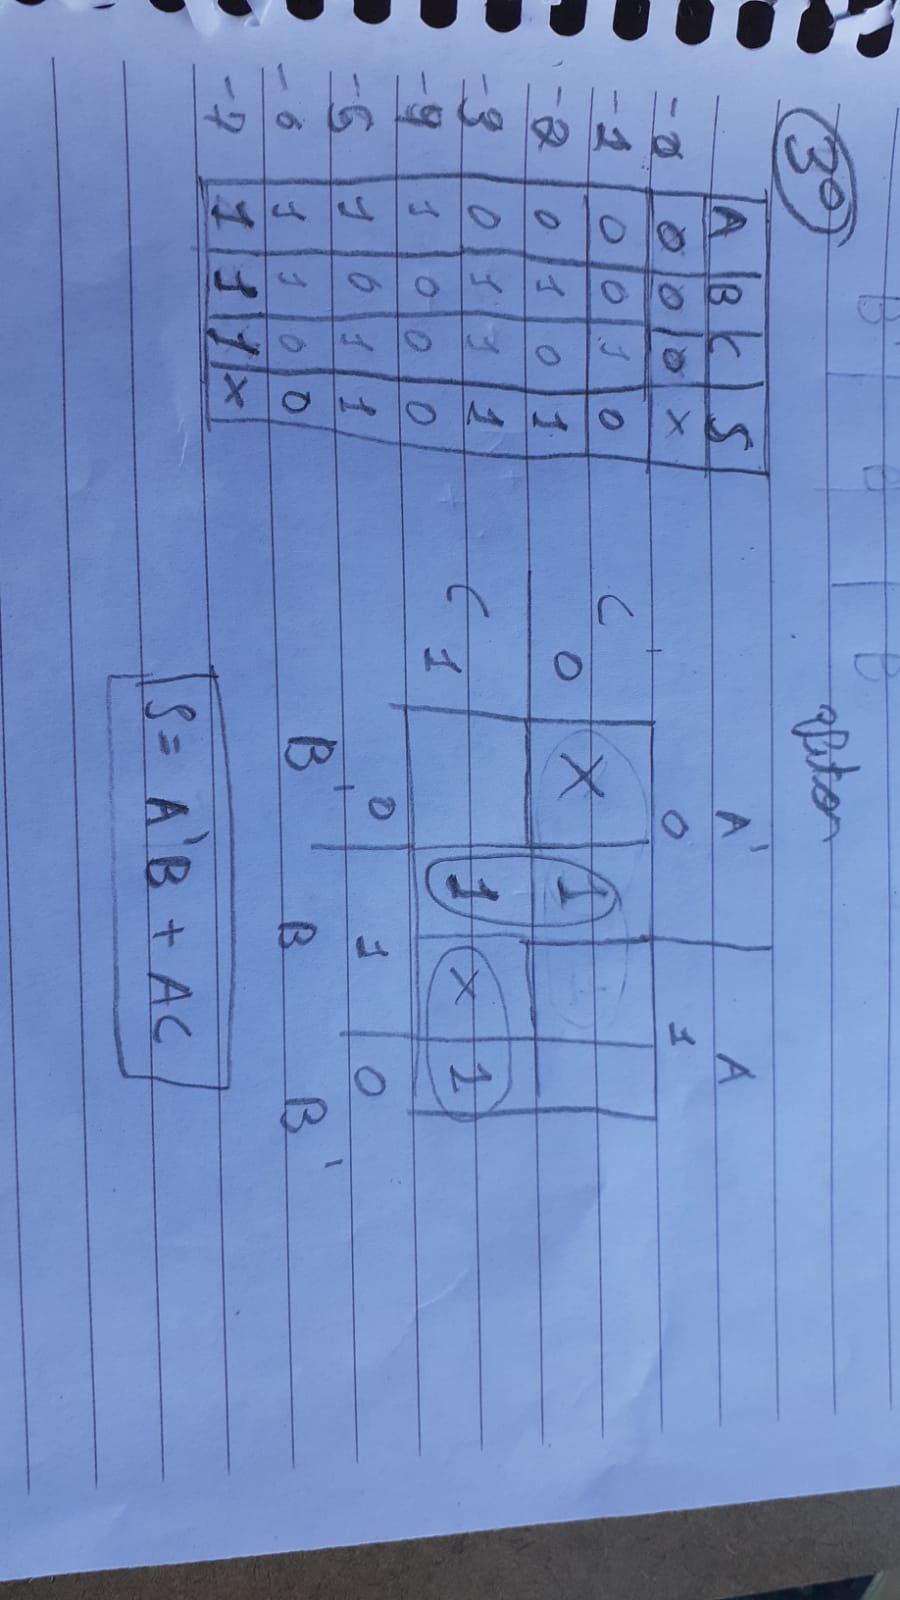 3º
A B C S
-0 0 0 0 X
-1 0 0 1 0
-2 0 1 0 1
-3 0 1 1 1
-4 1 0 0 0
-5 1 0 1 1
-6 1 1 0 0
-7 1 1 1 X
A' A
0 1
C' 0 X 1
C 1 1 X 1
0 1 0
B' B B'
S = A'B + AC